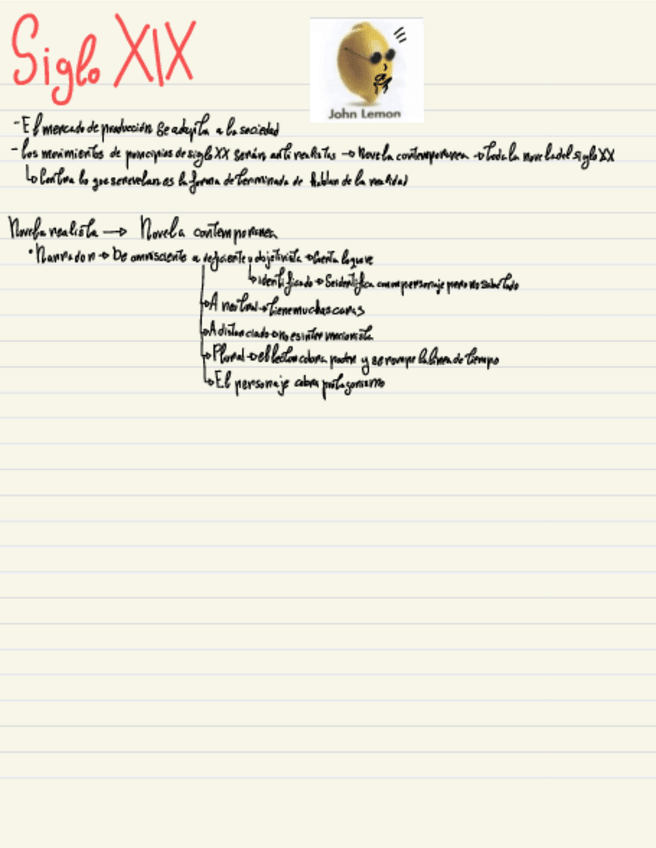 Siglo XIX
John Lemon
- El mercado de producción se adapta a la sociedad
- Los movimientos de principios de siglo XX serán anti realistas → Novela contemporanea → toda la novela del siglo XX
↳ Contra lo que se revelan es la forma determinada de hablar de la realidad
Novela realista → Novela contemporanea
• Narrador → De omnisciente a deficiente y objetivista → cuenta lo que ve
↳ identificado → Se identifica con un personaje pero no sabe todo
↳ A neutral → tiene muchas caras
↳ A distanciado → no es intervencionista
↳ Plural → el lector cobra poder y se rompe la linea de tiempo
↳ El personaje cobra protagonismo